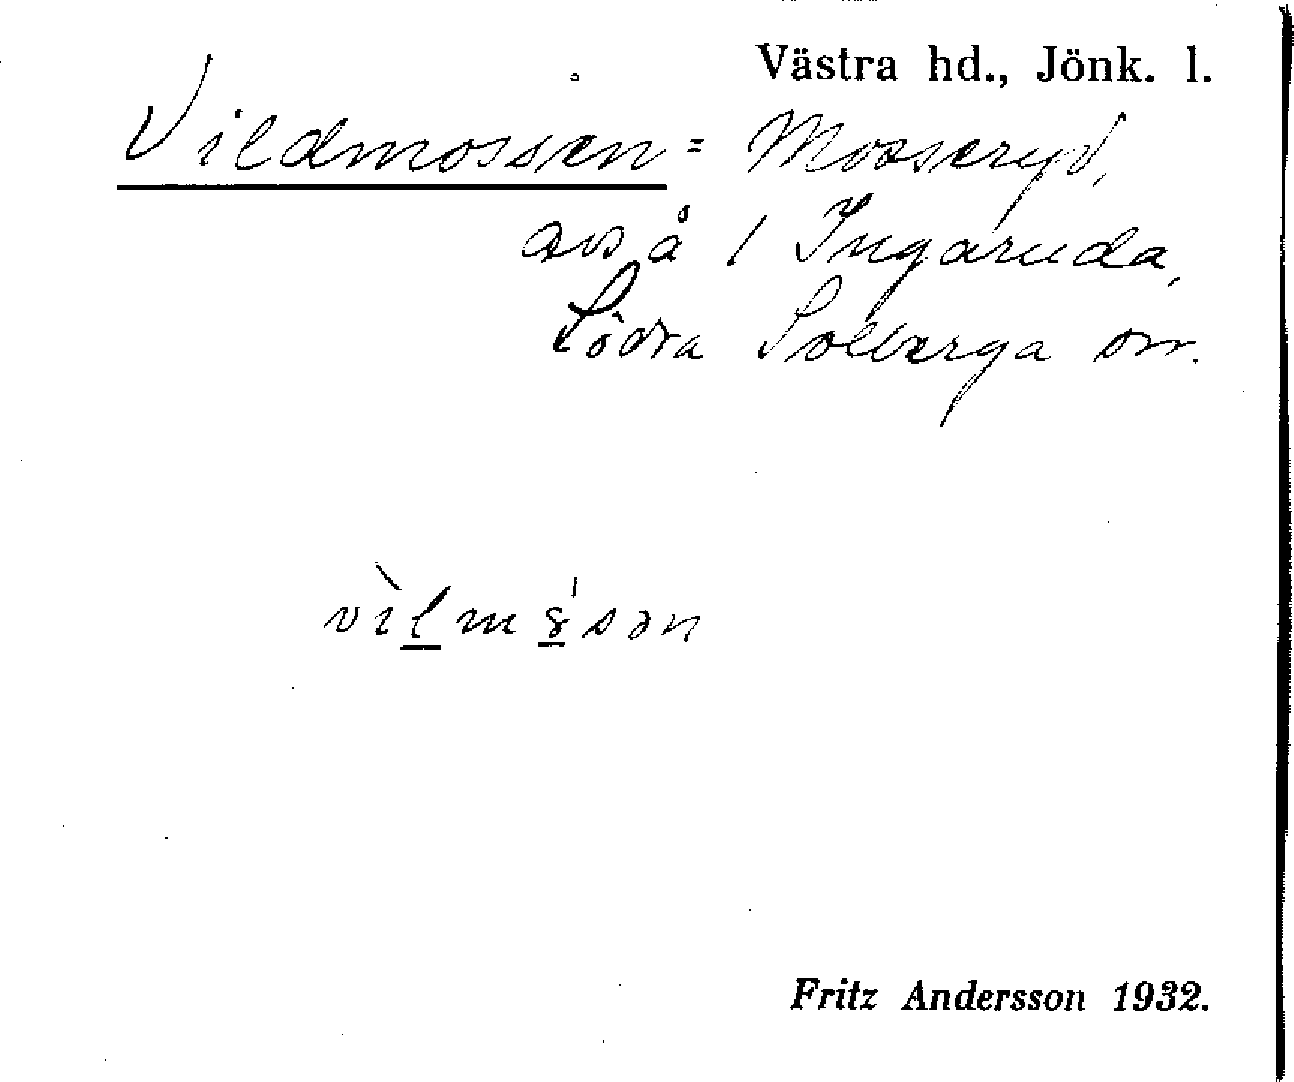 Västra hd., Jönk. l.
Vildmossen = Mosseryd,
avs å 1 Ingaruda,
Södra Solberga sn.
vìlmsən
Fritz Andersson 1932.